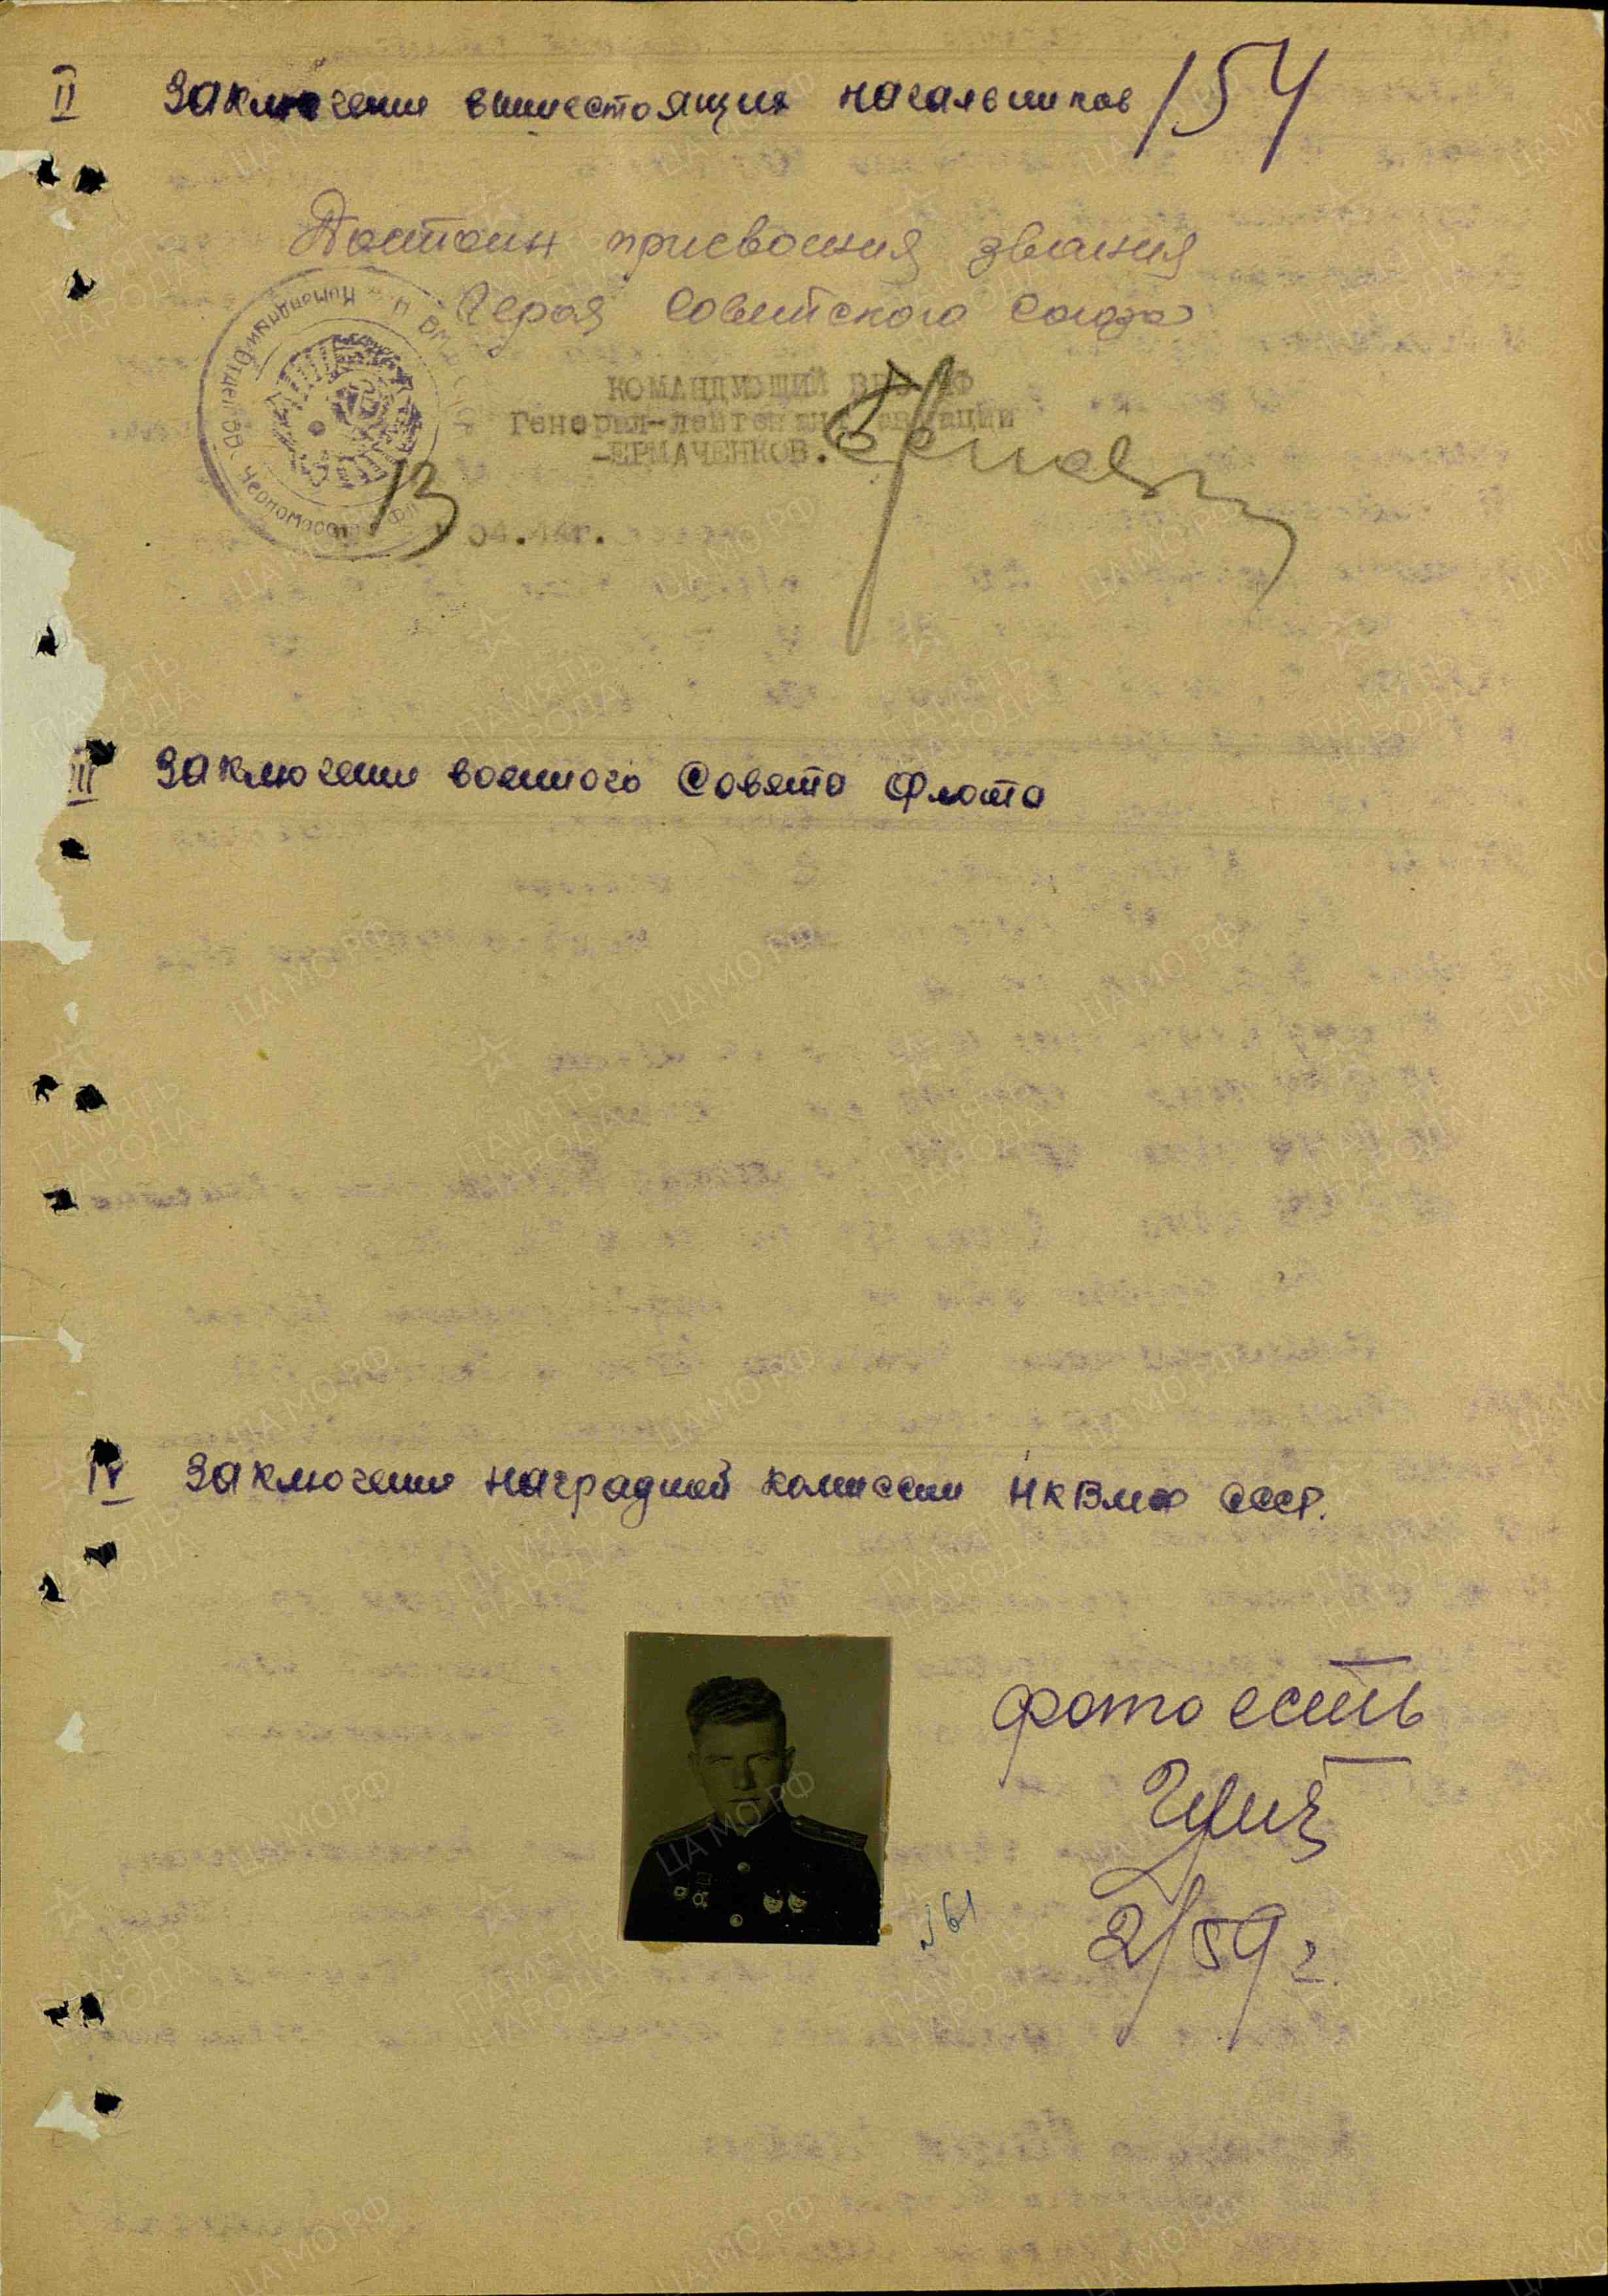 II Заключение вышестоящих начальников 154
Достоин присвоения звания
Героя Советского Союза
КОМАНДУЮЩИЙ ВВС ЧФ
Генерал-лейтенант авиации
-ЕРМАЧЕНКОВ.
13
III Заключение военного Совета Флота
IV Заключение наградной комиссии НКВМФ СССР.
фото есть
2/59 г.
ЦА МО РФ
ПАМЯТЬ
НАРОДА